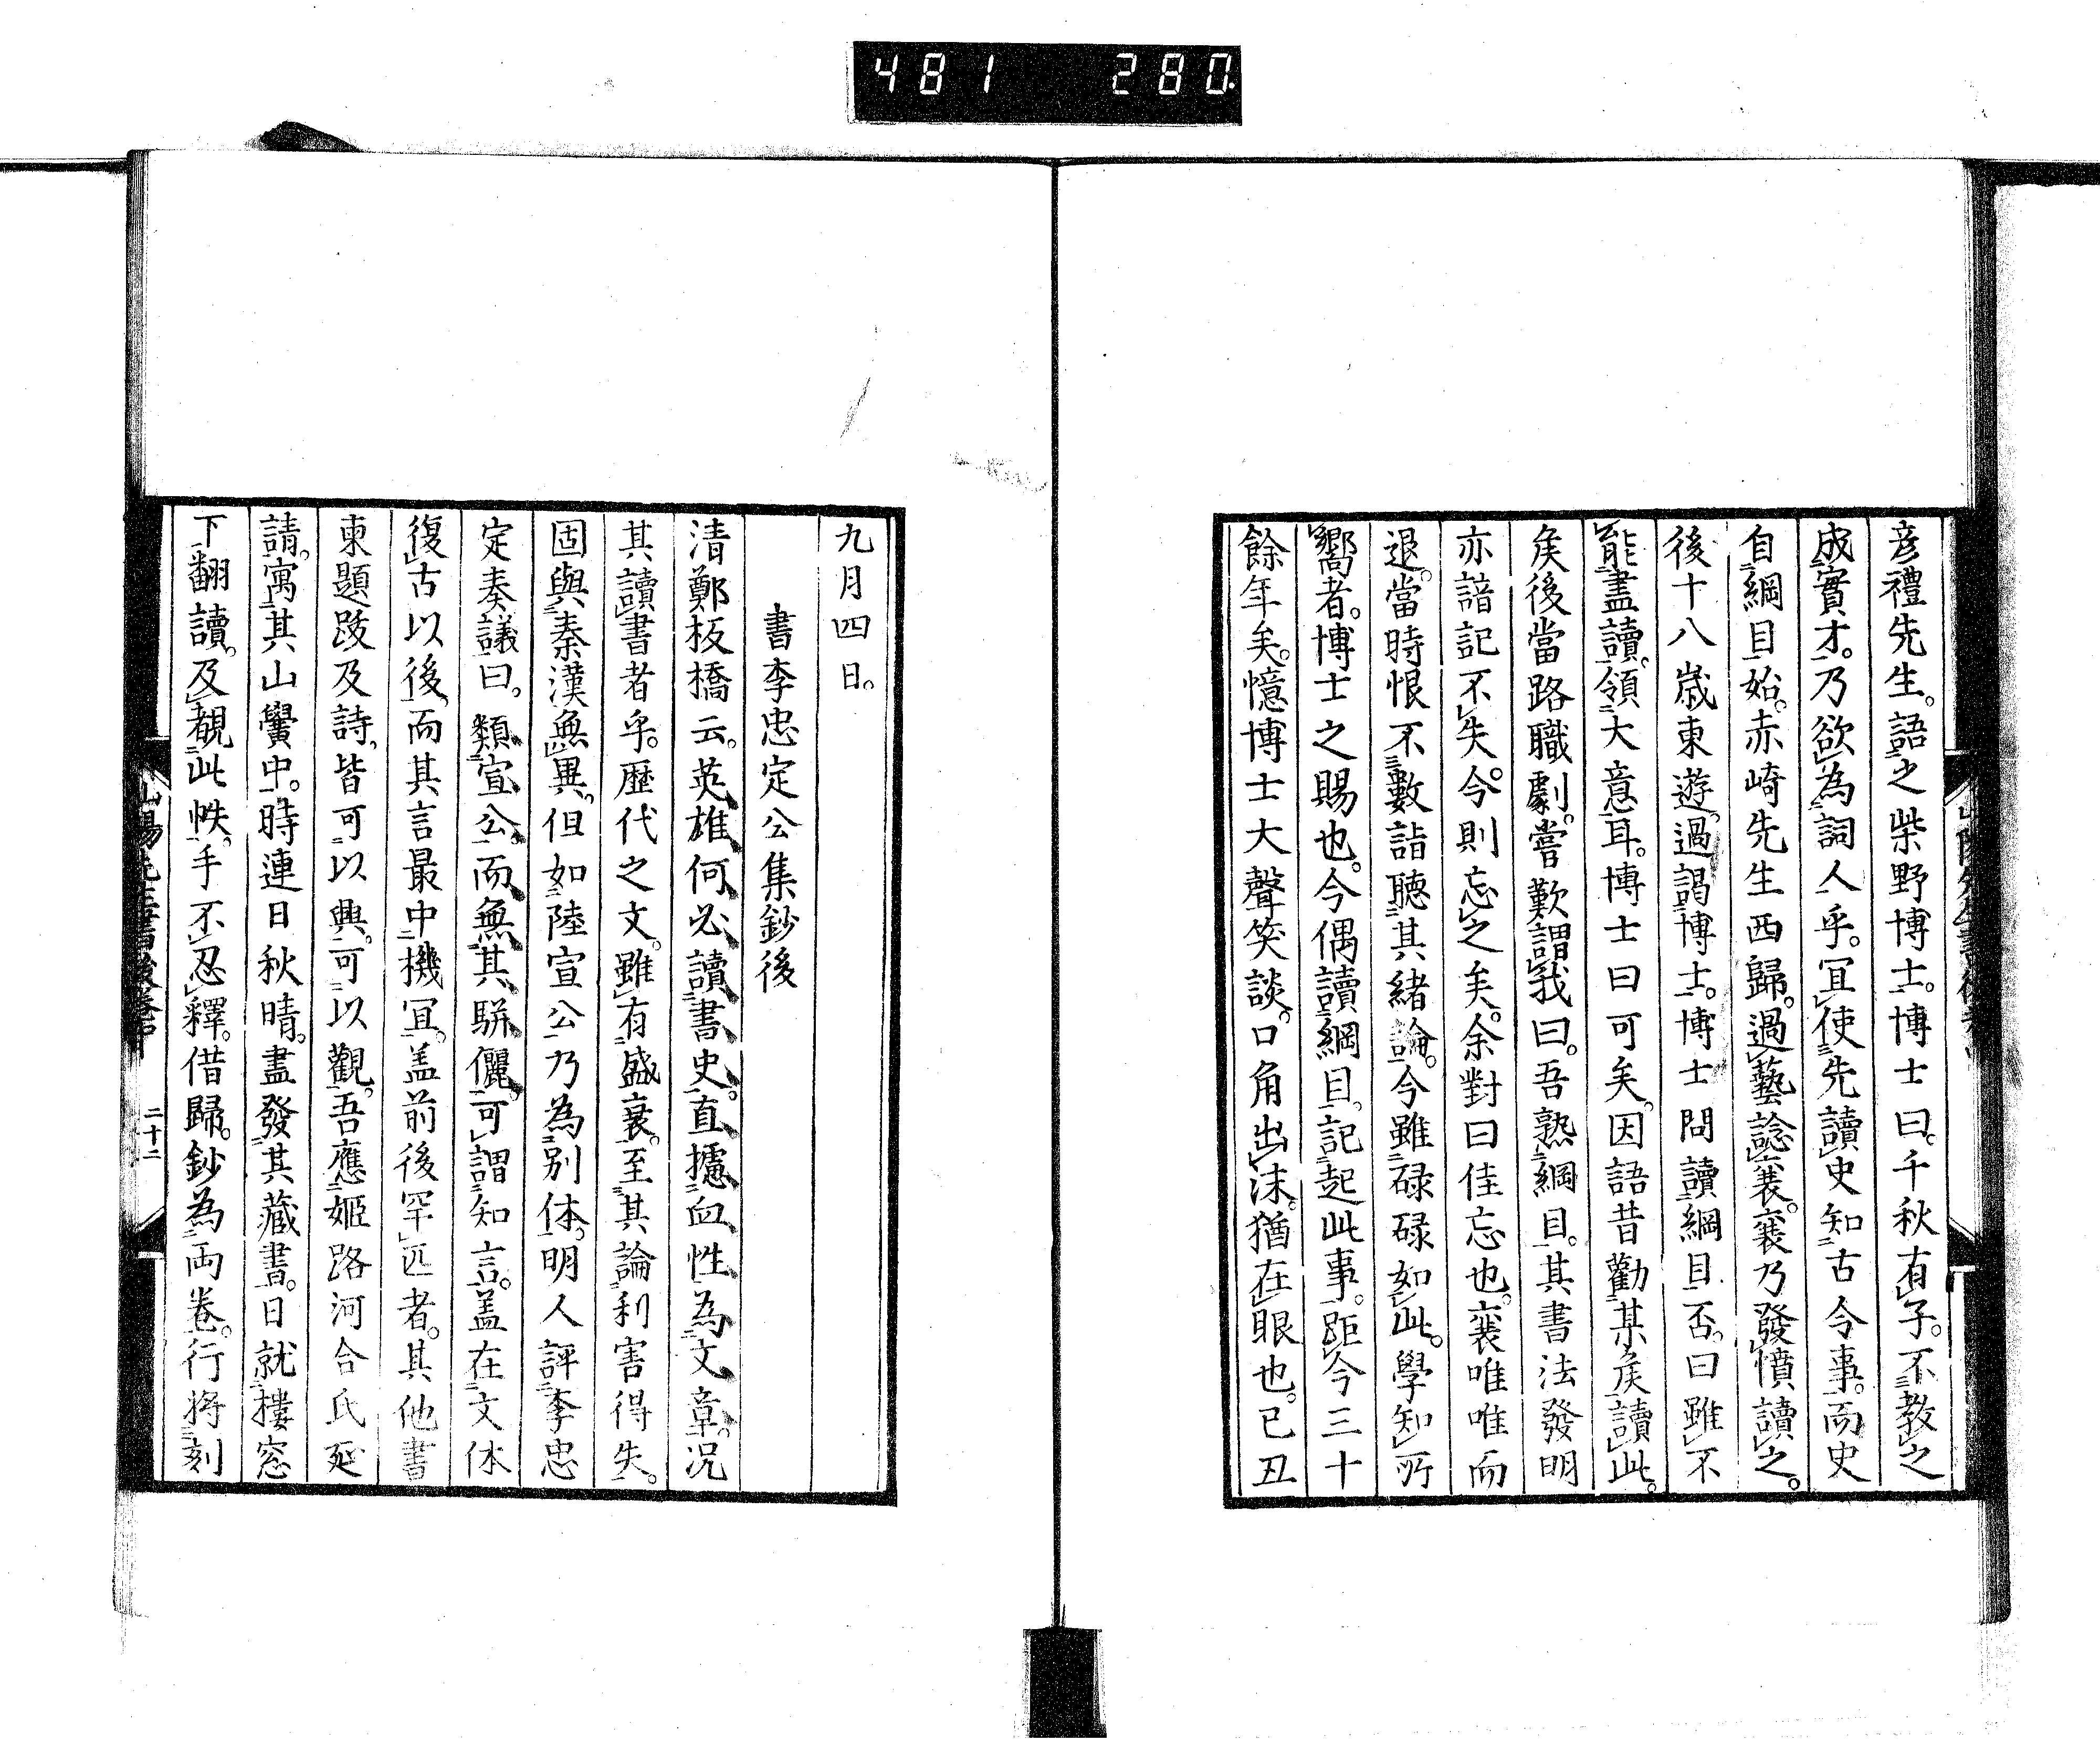 481 280
彦禮先生。語之柴野博士。博士曰。千秋有子。不教之
成實才。乃欲為詞人乎。宜使先讀史知古今事。而史
自綱目始。赤崎先生西歸。過藝諗襄。襄乃發憤讀之。
後十八歳東遊。過謁博士。博士問讀綱目否。曰雖不
能盡讀。領大意耳。博士曰可矣。因語昔勸某矦讀此。
矦後當路職劇。嘗歎謂我曰。吾熟綱目。其書法發明
亦諳記不失。今則忘之矣。余對曰佳忘也。襄唯唯而
退。當時恨不數詣聽其緒論。今雖碌碌如此。學知所
嚮者。博士之賜也。今偶讀綱目。記起此事。距今三十
餘年矣。憶博士大聲笑談。口角出沫。猶在眼也。己丑
九月四日。
書李忠定公集鈔後
清鄭板橋云。英雄何必讀書史。直攄血性為文章。況
其讀書者乎。歴代之文。雖有盛衰。至其論利害得失。
固與秦漢無異。但如陸宣公乃為別体。明人評李忠
定奏議曰。類宣公。而無其駢儷。可謂知言。盖在文体
復古以後。而其言最中機宜。盖前後罕匹者。其他書
東題跋及詩。皆可以興。可以觀。吾應姬路河合氏延
請。寓其山黌中。時連日秋晴。盡發其藏書。日就樓窓
下翻讀。及覩此帙。手不忍釋。借歸。鈔為両卷。行將刻
山陽先生書後卷中
二十二